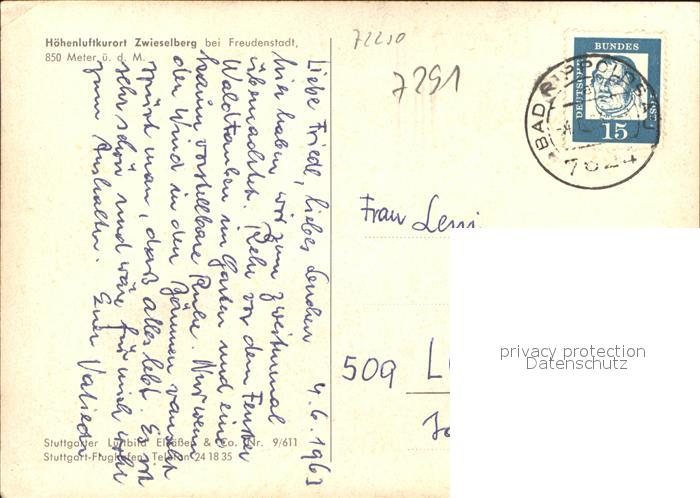 Höhenluftkurort Zwieselberg bei Freudenstadt,
850 Meter ü. d. M.
Liebe Friedl, liebes Lenchen 4.6.1963
hier haben wir zum zweitenmal
übernachtet. Rehe vor dem Fenster
Waldtauben im Garten und eine
kaum vorstellbare Ruhe. Nur wenn
der Wind in den Bäumen rauscht
spürt man, daß alles lebt. Es ist
sehr schön und wäre für mich wohl
zum Aushalten. Euer
Stuttgarter Luftbild Elsäßer & Co. Nr. 9/611
Stuttgart-Flughafen, Telefon 24 18 35
72250
7291
DEUTSCHE
BUNDES
POST
15
BAD RIPPOLDSAU
7624
Frau Leni
509 L
privacy protection
Datenschutz